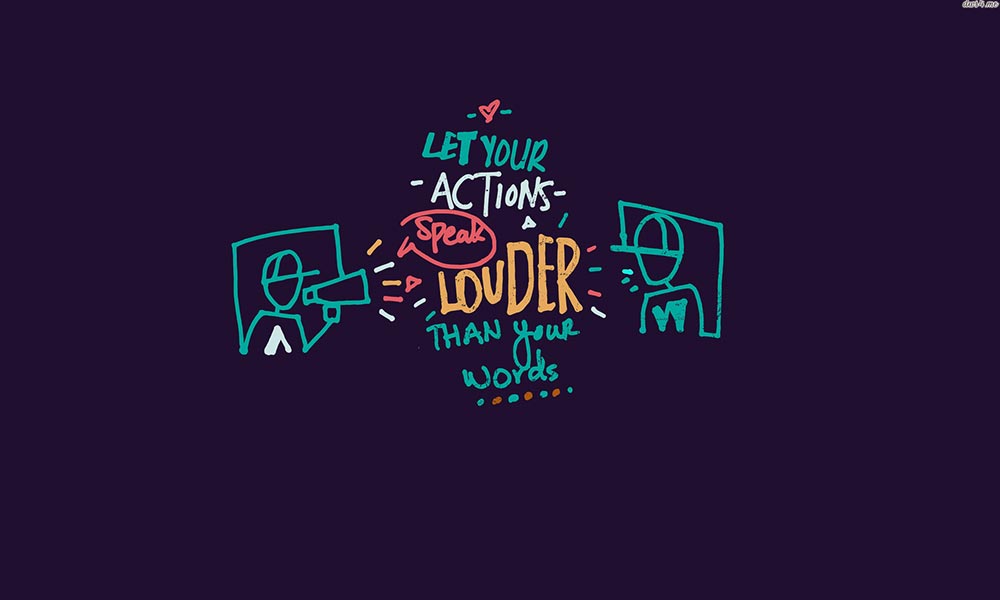 dwt4.me
LET YOUR
-ACTIONS-
Speak
LOUDER
THAN YOUR
words
A
W